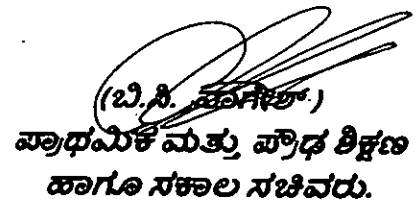 (ಬಿ.ಸಿ. ನಾಗೇಶ್.)
ಪ್ರಾಥಮಿಕ ಮತ್ತು ಪ್ರೌಢ ಶಿಕ್ಷಣ
ಹಾಗೂ ಸಕಾಲ ಸಚಿವರು.